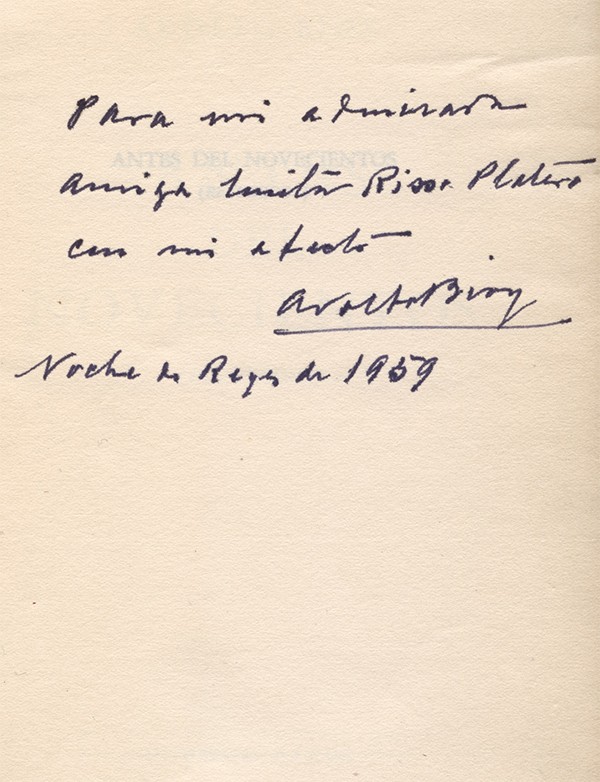 Para mi admirada
ANTES DEL NOVECIENTOS
amiga Emilia Risso Platero
con mi afecto
Adolfo Bioy
Noche de Reyes de 1959